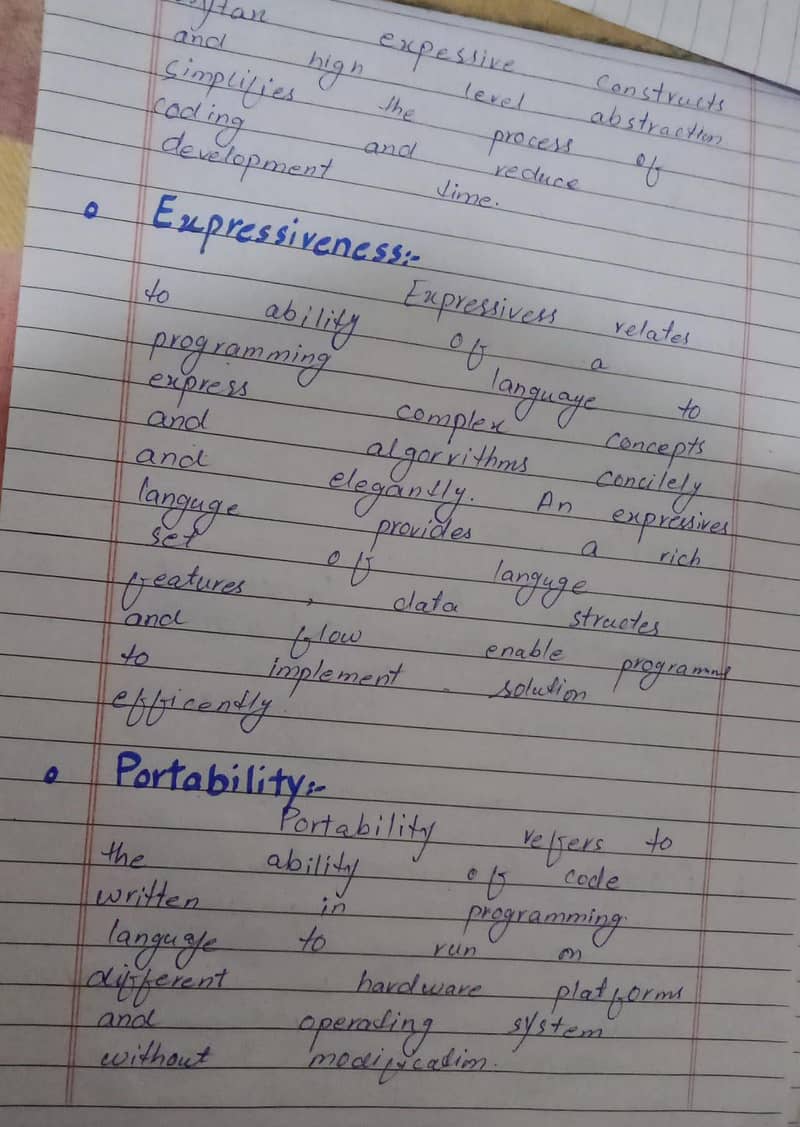 expessive constructs
and high level abstraction
simplifies the process of
coding and reduce
development time.
Expressiveness:-
Expressivess relates
to ability of a
programming language to
express complex concepts
and algorrithms concilely
and elegantly. An expressives
languge provides a rich
set of languge
features, data structes
and flow enable programms
to implement solution
efficently.
Portability:-
Portability reffers to
the ability of code
written in programming
language to run on
different hardware platforms
and operating system
without modification.